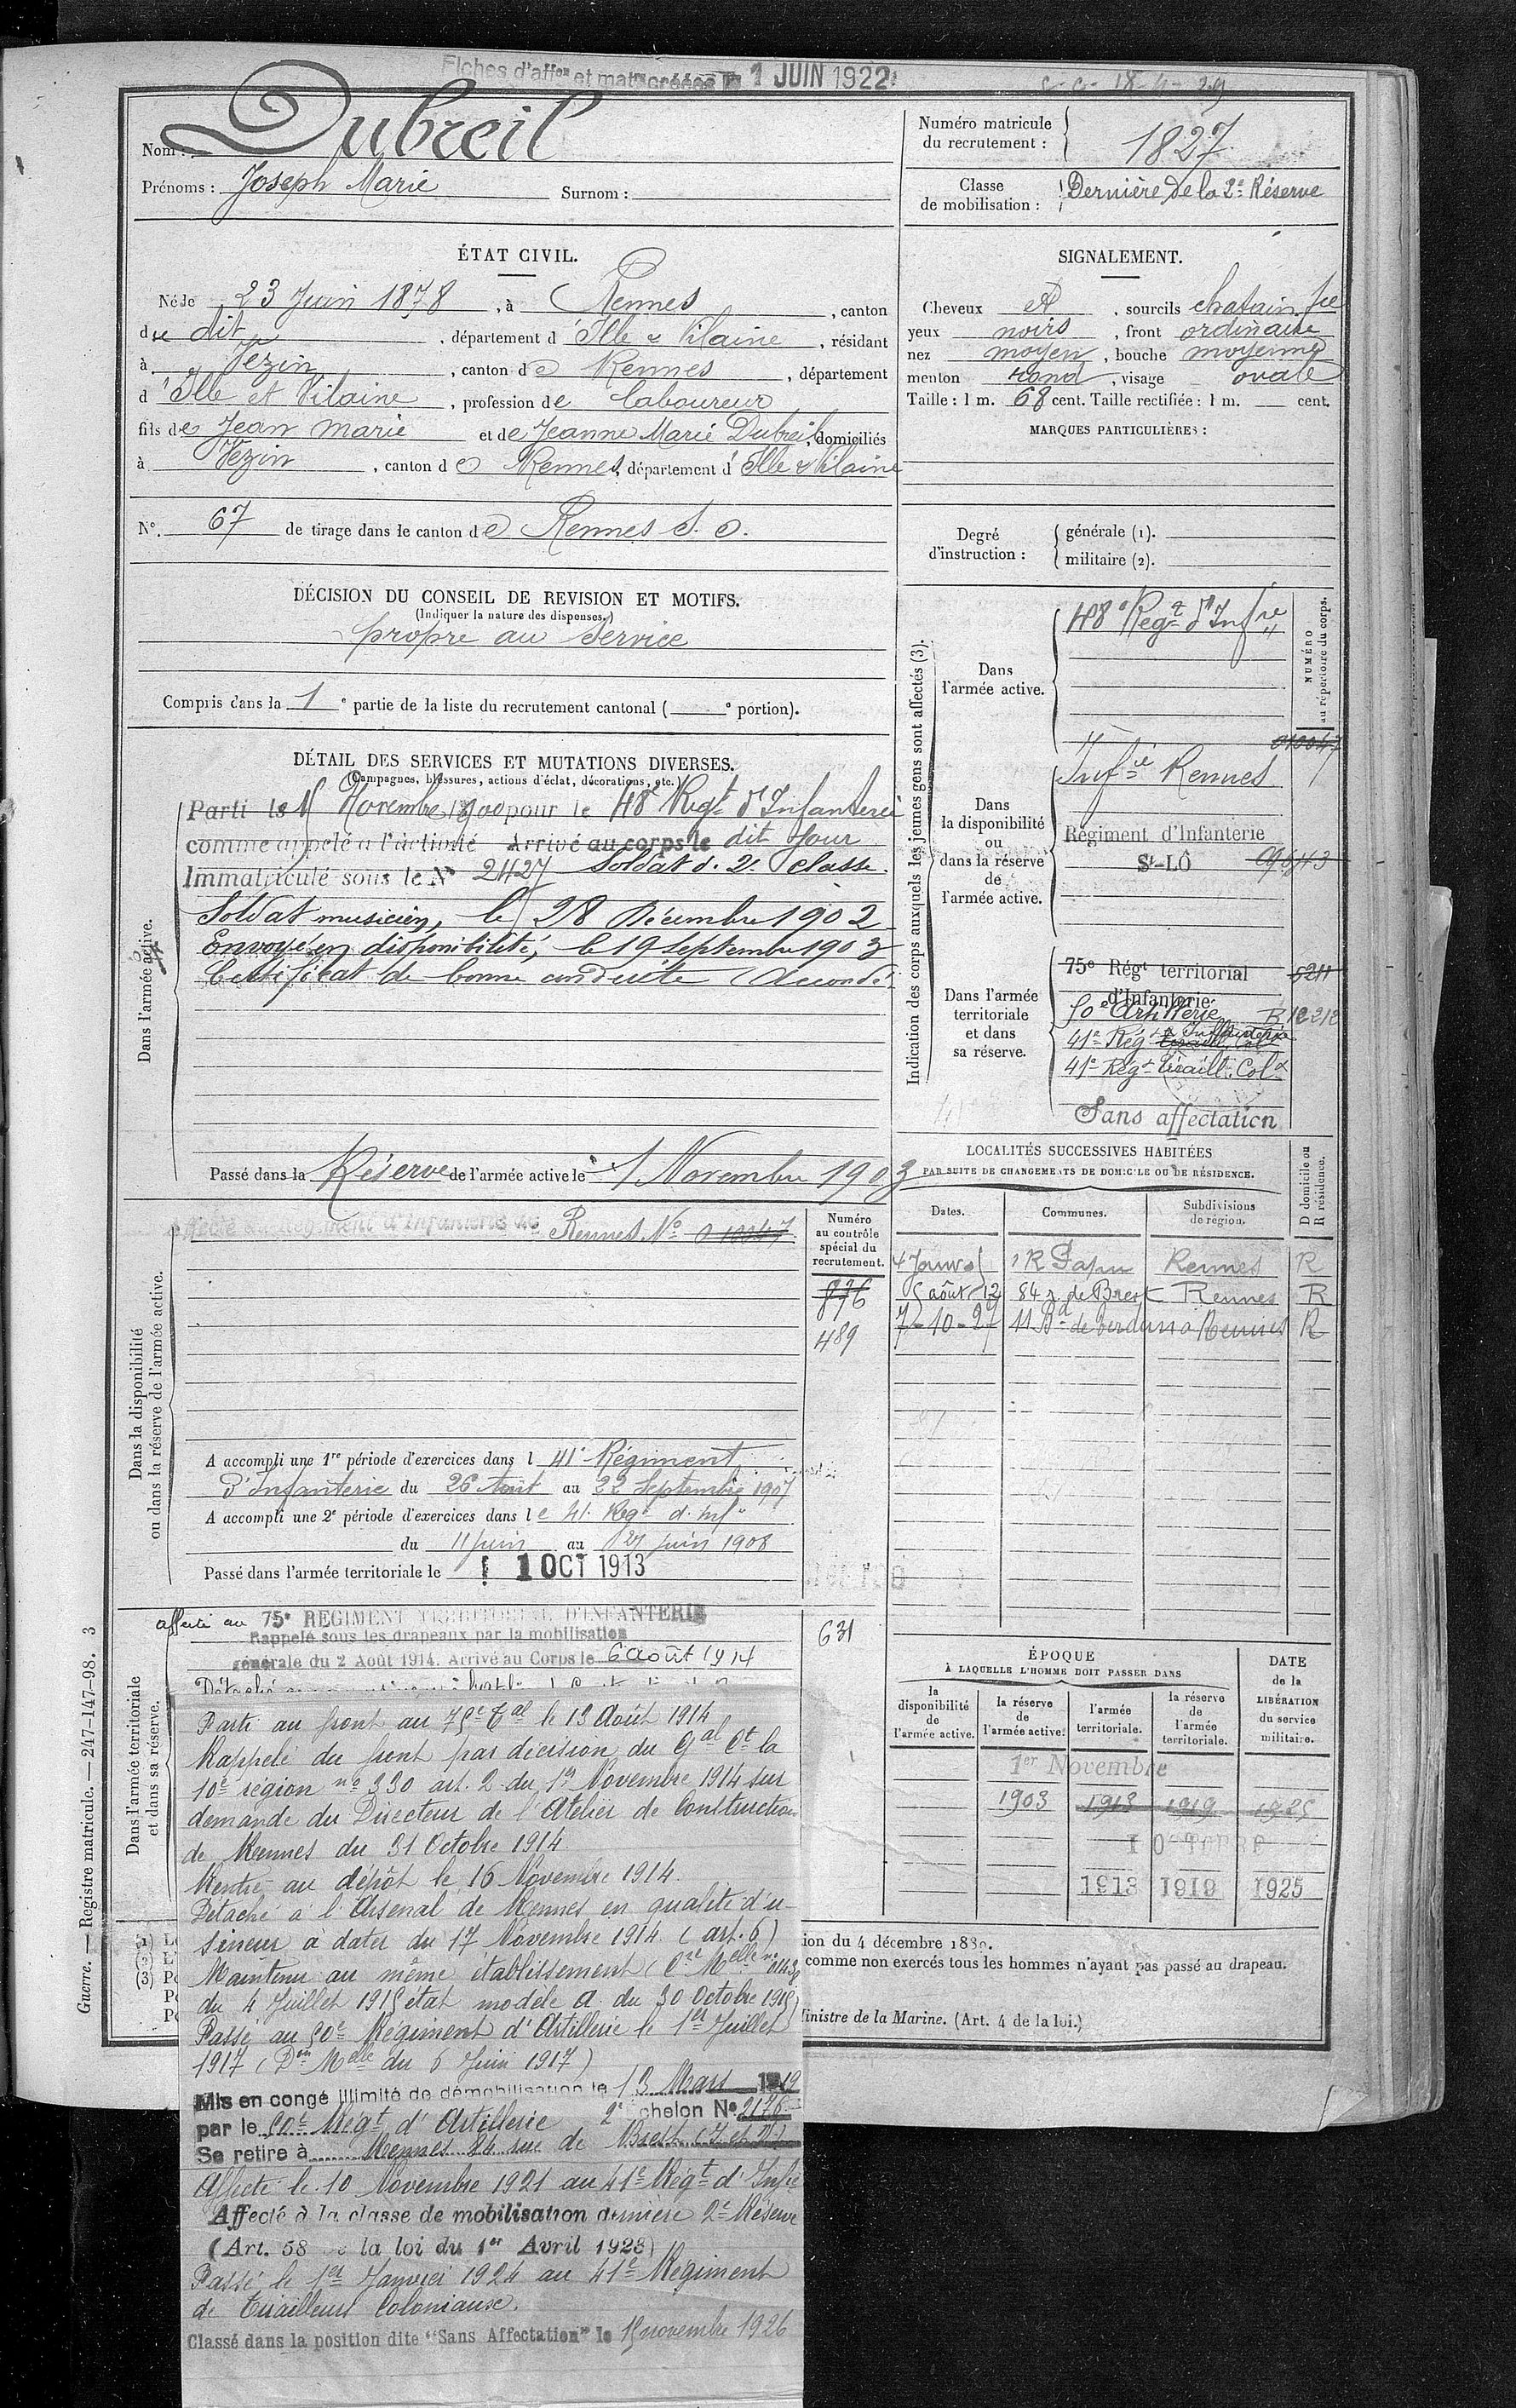 Fiches d'affon et matle créées le 1 JUIN 1922
c.c. 18-4-29
Nom : Dubreil
Prénoms : Joseph Marie Surnom :
Numéro matricule du recrutement : 1827
Classe de mobilisation : Dernière de la 2e Réserve
ÉTAT CIVIL.
Né le 23 Juin 1878, à Rennes, canton
du dit, département d'Ille & Vilaine, résidant
à Vezin, canton de Rennes, département
d'Ille et Vilaine, profession de laboureur
fils de Jean Marie et de Jeanne Marie Dubreil, domiciliés
à Vezin, canton de Rennes, département d'Ille & Vilaine
N°. 67 de tirage dans le canton de Rennes S. O.
SIGNALEMENT.
Cheveux et, sourcils chatain fcé
yeux noirs, front ordinaire
nez moyen, bouche moyenne
menton rond, visage ovale
Taille : 1 m. 68 cent. Taille rectifiée : 1 m. cent.
MARQUES PARTICULIÈRES :
Degré d'instruction : générale (1).
militaire (2).
DÉCISION DU CONSEIL DE REVISION ET MOTIFS.
(Indiquer la nature des dispenses.)
propre au service
Compris dans la 1e partie de la liste du recrutement cantonal ( e portion).
DÉTAIL DES SERVICES ET MUTATIONS DIVERSES.
(Campagnes, blessures, actions d'éclat, décorations, etc.)
Dans l'armée active.
Parti le 15 Novembre 1900 pour le 48e Regt d'Infanterie
comme appelé à l'activité Arrivé au corps le dit jour
Immatriculé sous le N° 2427 Soldat d. 2e classe.
Soldat musicien, le 28 Décembre 1902
Envoyé en disponibilité, le 19 Septembre 1903
Certificat de bonne conduite Accordé
Passé dans la Réserve de l'armée active le 1 Novembre 1903
Indication des corps auxquels les jeunes gens sont affectés (3).
NUMÉRO au répertoire du corps.
Dans l'armée active.
48e Regt d'Infie
Dans la disponibilité ou dans la réserve de l'armée active.
Infie Rennes 010047
Régiment d'Infanterie
St-LÔ
Dans l'armée territoriale et dans sa réserve.
75e Régt territorial d'Infanterie 5211
50e Artillerie
41e Régt Infanterie
41e Régt Tiraill. Colx
Sans affectation
Dans la disponibilité ou dans la réserve de l'armée active.
Affecté au Régiment d'Infanterie de Rennes N° 0 10047
Numéro au contrôle spécial du recrutement.
876
489
A accompli une 1re période d'exercices dans l 41e Régiment
d'Infanterie du 26 Août au 22 Septembre 1907
A accompli une 2e période d'exercices dans le 41e Regt d'Infie
du 11 juin au 27 juin 1908
Passé dans l'armée territoriale le 1 OCT 1913
LOCALITÉS SUCCESSIVES HABITÉES
PAR SUITE DE CHANGEMENTS DE DOMICILE OU DE RÉSIDENCE.
D domicile ou R résidence.
Dates. Communes. Subdivisions de région.
Rennes R
5 août 12 84 r. de Brest Rennes R
7-10-27 11 Bd de Verdun à Rennes R
Dans l'armée territoriale et dans sa réserve.
affecté au 75e REGIMENT TERRITORIAL D'INFANTERIE 631
Rappelé sous les drapeaux par la mobilisation
générale du 2 Août 1914. Arrivé au Corps le 6 août 1914
Parti au front au 75e Tal le 13 Août 1914
Rappelé du front par décision du Gal Ct la
10e région n° 330 art. 2 du 1er Novembre 1914 sur
demande du Directeur de l'Atelier de Construction
de Rennes du 31 Octobre 1914
Rentré au dépôt le 16 Novembre 1914.
Détaché à l'Arsenal de Rennes en qualité d'u-
sineur à dater du 17 Novembre 1914. (art. 6)
Maintenu au même établissement (Cre Melle n°
du 4 Juillet 1915 état modèle A. du 30 Octobre 1915)
Passé au 50e Régiment d'Artillerie le 1er Juillet
1917 (Don Melle du 6 Juin 1917)
Mis en congé illimité de démobilisation le 13 Mars 1919
par le 50e Régt d'Artillerie 2e échelon N° 2176
Se retire à Rennes 84 rue de Brest (I. et V.)
Affecté le 10 Novembre 1921 au 41e Régt d'Infie
Affecté à la classe de mobilisation dernière 2e Réserve
(Art. 58 de la loi du 1er Avril 1923)
Passé le 1er Janvier 1924 au 41e Régiment
de Tirailleurs Coloniaux.
Classé dans la position dite "Sans Affectation" le 15 novembre 1926
ÉPOQUE
À LAQUELLE L'HOMME DOIT PASSER DANS
la disponibilité de l'armée active. la réserve de l'armée active. l'armée territoriale. la réserve de l'armée territoriale.
DATE de la LIBÉRATION du service militaire.
1er Novembre
1903 1913 1919 1925
1 OCTOBRE
1913 1919 1925
(1)
(2)
(3)
ion du 4 décembre 1889.
comme non exercés tous les hommes n'ayant pas passé au drapeau.
Ministre de la Marine. (Art. 4 de la loi.)
Guerre. — Registre matricule. — 247-147-98. 3